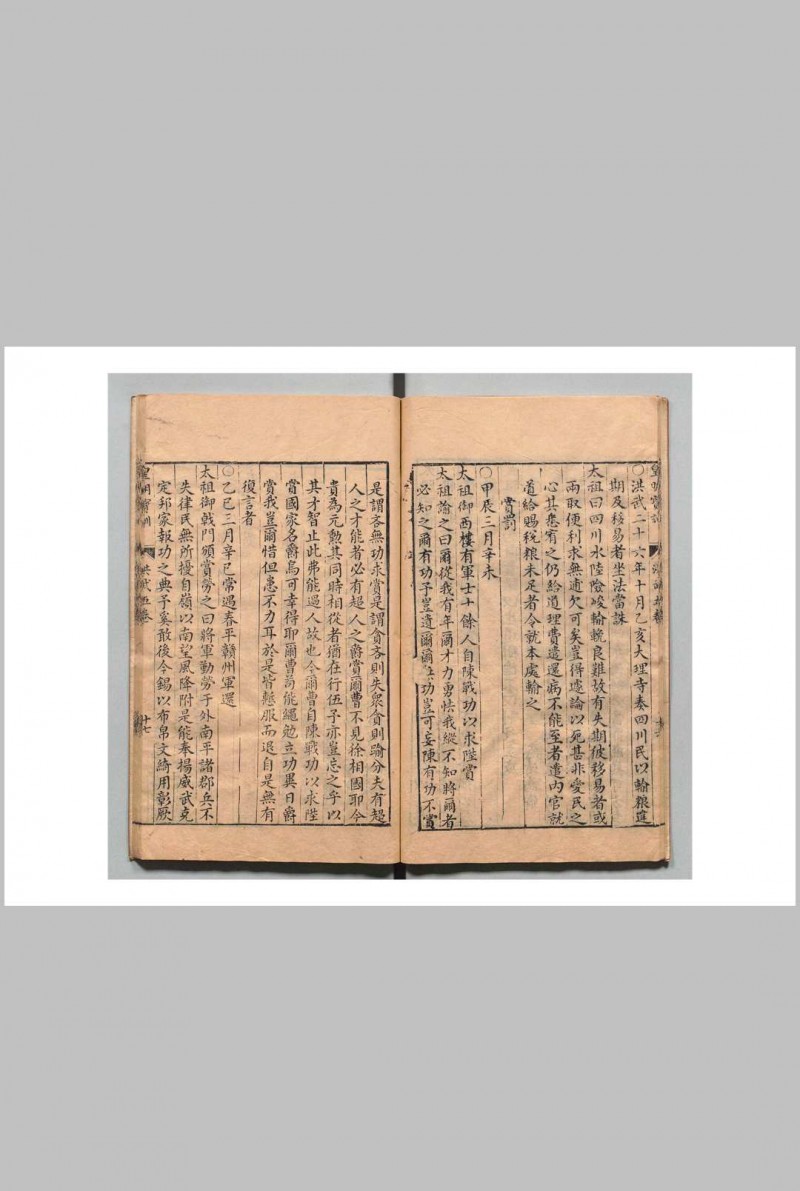 ○洪武二十六年十月乙亥大理寺奏四川民以輸粮違
期及移易者坐法當誅
太祖曰四川水陸險峻輸輓良難故有失期彼移易者或
兩取便利求無逋欠可矣豈得遽論以死甚非愛民之
心其悉宥之仍給道理費遣還病不能至者遣内官就
道給賜稅粮未足者令就本處輸之
賞罰
○甲辰三月辛未
太祖御西樓有軍士十餘人自陳戰功以求陞賞
太祖諭之曰爾從我有年爾才力勇怯我縱不知將爾者
必知之爾有功予豈遺爾爾 功豈可妄陳有功不賞
是謂吝無功求賞是謂貪吝則失衆貪則踰分夫有超
人之才能者必有超人之爵賞爾曹不見徐相國耶今
貴為元勳其同時相從者猶在行伍予亦豈忘之乎以
其才智止此弗能過人故也今爾曹自陳戰功以求陞
賞國家名爵烏可幸得耶爾曹苟能黽勉立功異日爵
賞我豈爾惜但患不力耳於是皆慙服而退自是無有
復言者
○乙巳三月辛巳常遇春平贛州軍還
太祖御戟門頒賞勞之曰將軍勤勞于外南平諸郡兵不
失律民無所擾自嶺以南望風降附是能奉揚威武克
定邦家報功之典予奚敢後今錫以布帛文綺用彰厥
皇明寶訓 洪武五卷 廿七